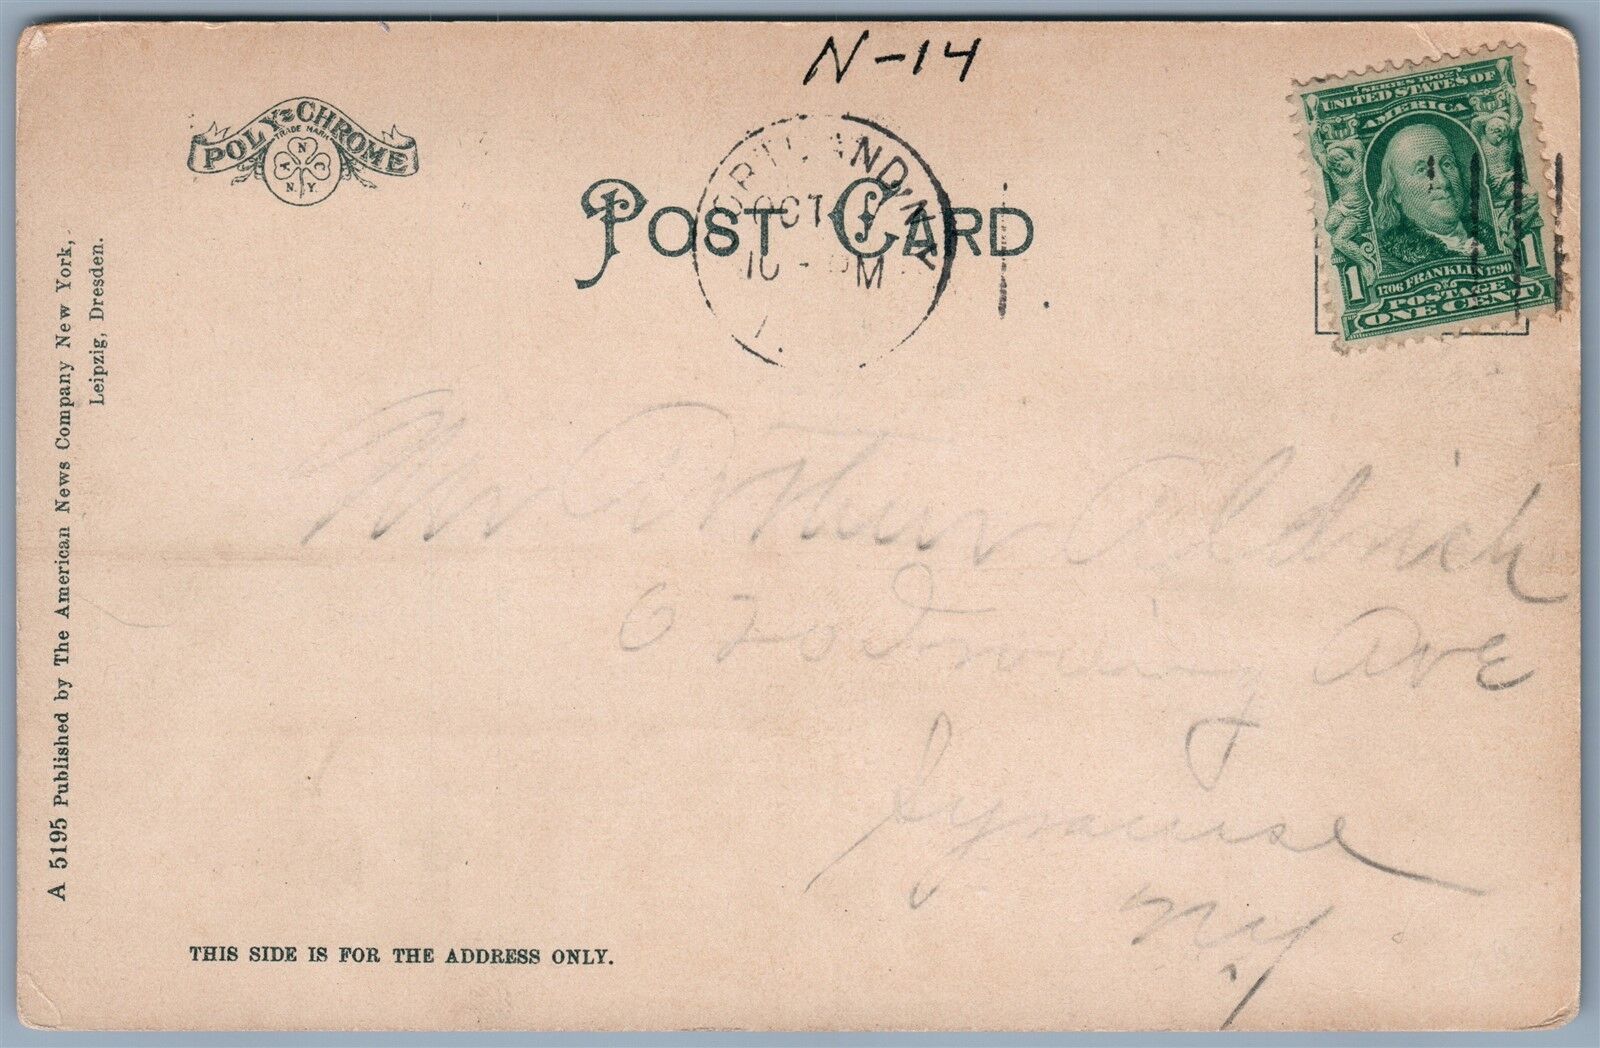 N-14
POLY-CHROME
TRADE MARK
A N C
N.Y.
POST CARD
CORTLAND, N.Y.
OCT
10 - PM
SERIES 1902
UNITED STATES OF
AMERICA
1706 FRANKLIN 1790
1 POSTAGE 1
ONE CENT
Mr Arthur Aldrich
Ave
Syracuse
NY
A 5195 Published by The American News Company New York,
Leipzig, Dresden.
THIS SIDE IS FOR THE ADDRESS ONLY.